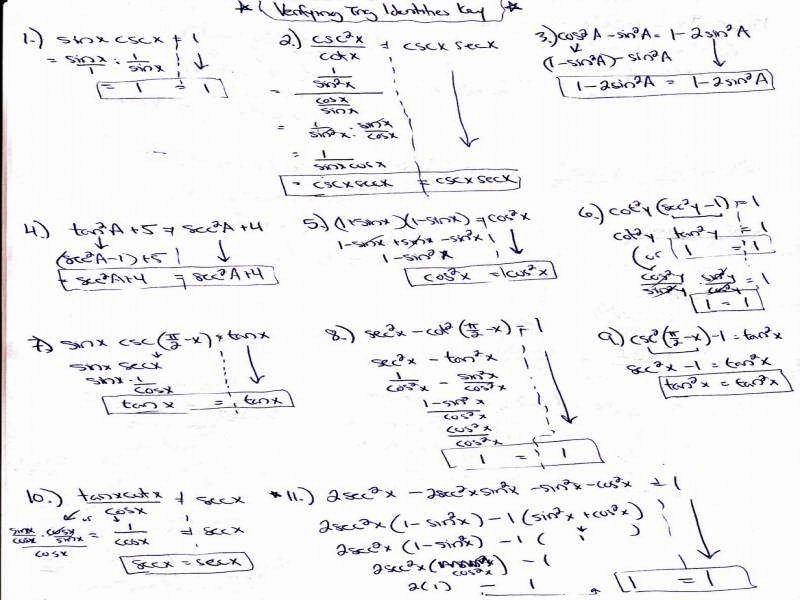 * Verifying Trig Identities Key *
1.) sinx cscx = 1
= sinx/1 · 1/sinx
= 1 = 1
2.) csc²x/cotx = cscx secx
= (1/sin²x)/(cosx/sinx)
= 1/sin²x · sinx/cosx
= 1/(sinx cosx)
= cscx secx = cscx secx
3.) cos²A - sin²A = 1 - 2sin²A
(1 - sin²A) - sin²A
1 - 2sin²A = 1 - 2sin²A
4.) tan²A + 5 = sec²A + 4
(sec²A - 1) + 5
= sec²A + 4 = sec²A + 4
5.) (1 + sinx)(1 - sinx) = cos²x
1 - sinx + sinx - sin²x
1 - sin²x
cos²x = cos²x
6.) cot²y (sec²y - 1) = 1
cot²y tan²y = 1
(or 1 = 1
cos²y/sin²y · sin²y/cos²y = 1
1 = 1
7.) sinx csc(π/2 - x) = tanx
sinx secx
sinx · 1/cosx
tanx = tanx
8.) sec²x - cot²(π/2 - x) = 1
sec²x - tan²x
1/cos²x - sin²x/cos²x
(1 - sin²x)/cos²x
cos²x/cos²x
1 = 1
9.) csc²(π/2 - x) - 1 = tan²x
sec²x - 1 = tan²x
tan²x = tan²x
10.) tanx cotx/cosx = secx
or
(sinx/cosx · cosx/sinx)/cosx = 1/cosx = secx
secx = secx
* 11.) 2sec²x - 2sec²x sin²x - sin²x - cos²x = 1
2sec²x (1 - sin²x) - 1 (sin²x + cos²x)
2sec²x (1 - sin²x) - 1 ( )
2sec²x (cos²x) - 1
2(1) - 1
1 = 1